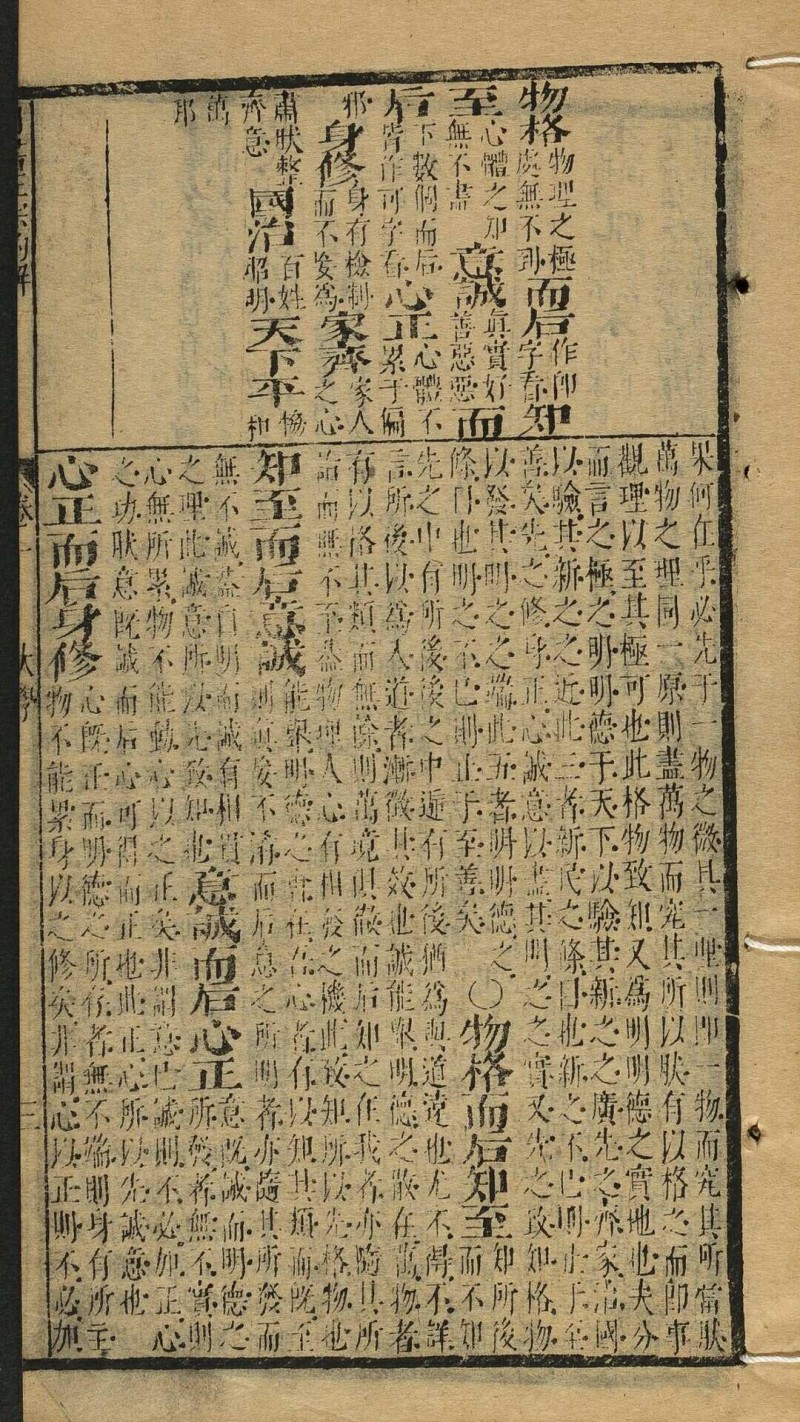 物格物理之極處無不到而后作即字看知
至心體之知無不盡意誠真實好善惡惡而
后下數個而后皆作可字看心正心體不累于偏
邪身修身有檢制而不妄為家齊家人之心
肅然整齊意國治百姓昭明天下平協和
萬
邦
果何在乎必先于一物之微具一理則即一物而究其所當然
萬物之理同一原則盡萬物而究其所以然有以格之而即事
觀理以至其極可也此格物致知又為明明德之實地也夫分
而言之極之明明德于天下以驗其新之之廣先之齊家治國
以驗其新之之近此三者新民之條目也新之不已則止于至
善矣先之修身正心誠意以盡其明之之實又先之致知格物
以發其明之之端此五者明明德之
條目也明之不已則止于至善矣○物格而后知至知所後而不知
先之中有所後後之中逓有所後猶為與道遠也尤不得不詳
言所後以為入道者漸微其效也誠能舉明德之散在萬物者
有以格其類而無餘則萬境俱徹而后知之在我者亦隨其所
詣而無不至蓋物理人心有相發之機此致知所以先格物也
知至而后意誠能舉明德之會在吾心者有以知其類而既至則真妄不淆而后意之所明者亦隨其所發而
無不誠蓋自明而誠有相貫
之理此誠意所以先致知也意誠而后心正意既誠而明德之所發者無不實則
心無所累物不能動心以之正矣非謂意已誠則不必加正心
之功然意既誠而后心可得而正也此正心所以先誠意也
心正而后身修心既正而明德之所存者無不端則身有所主物不能累身以之修矣非謂心以正則不必加
卷一 大學 三